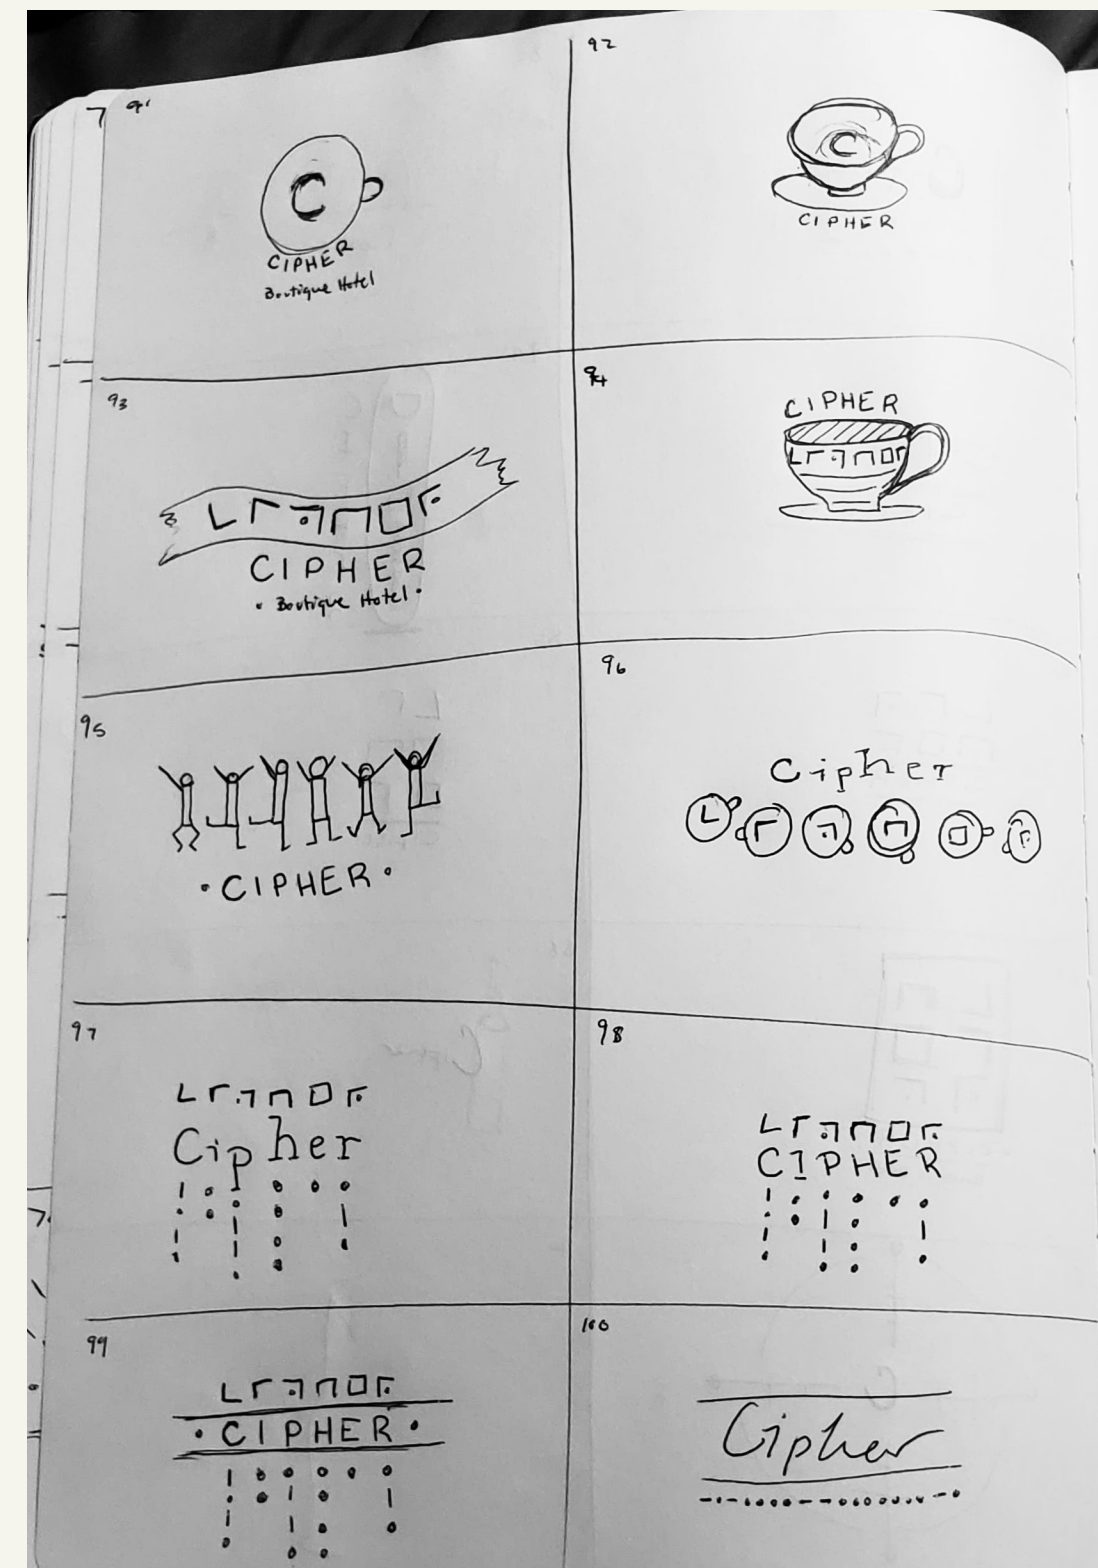 91
C
CIPHER
Boutique Hotel
92
C
CIPHER
93
CIPHER
• Boutique Hotel •
94
CIPHER
95
• CIPHER •
96
Cipher
97
Cipher
98
CIPHER
99
• CIPHER •
100
Cipher